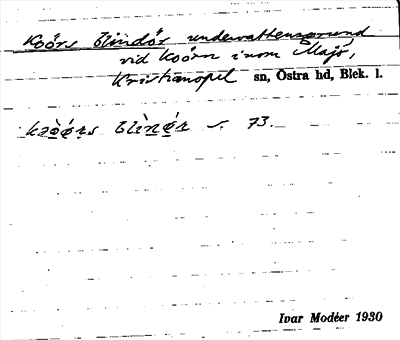 Koörs blindör undervattensgrund
vid Koörn inom Majö,
Kristianopel sn, Östra hd, Blek. l.
s. 73.
Ivar Modéer 1930